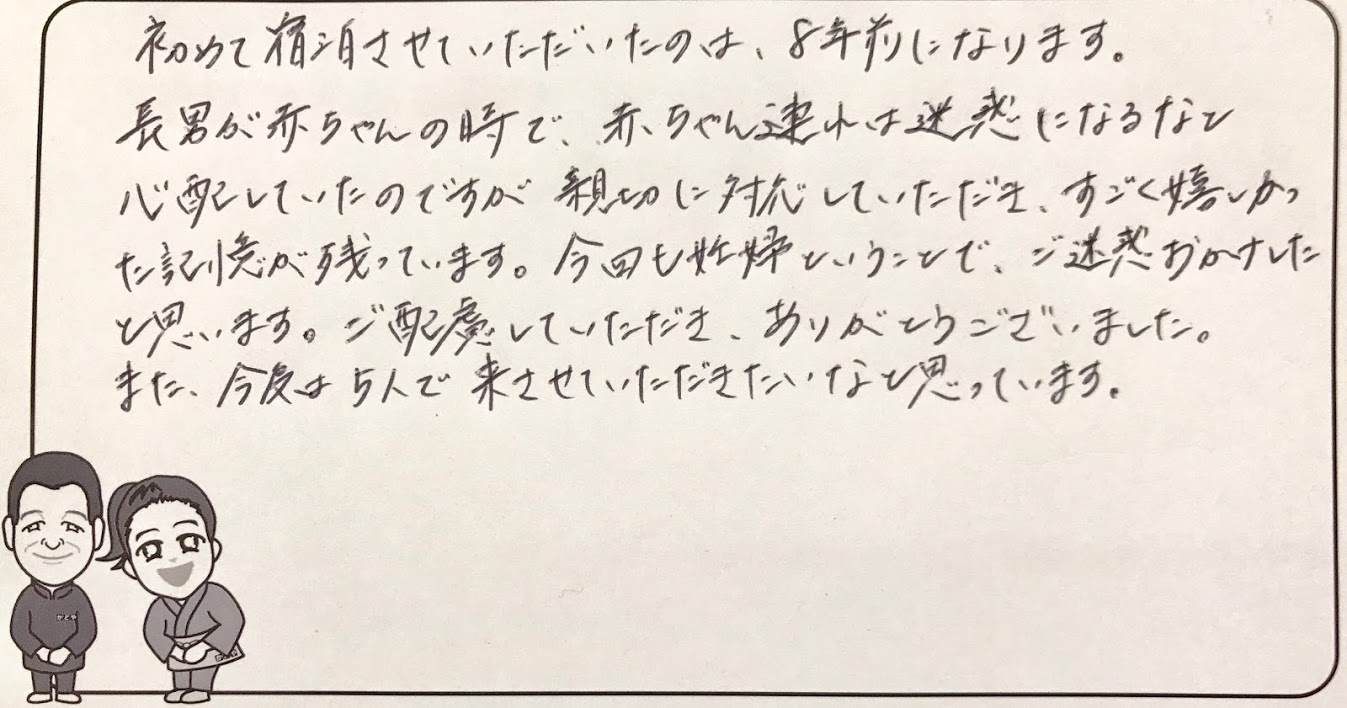 初めて宿泊させていただいたのは、8年前になります。
長男が赤ちゃんの時で、赤ちゃん連れは迷惑になるなと
心配していたのですが 親切に対応していただき、すごく嬉しかっ
た記憶が残っています。今回も妊婦ということで、ご迷惑おかけした
と思います。ご配慮していただき、ありがとうございました。
また、今度は5人で来させていただきたいなと思っています。